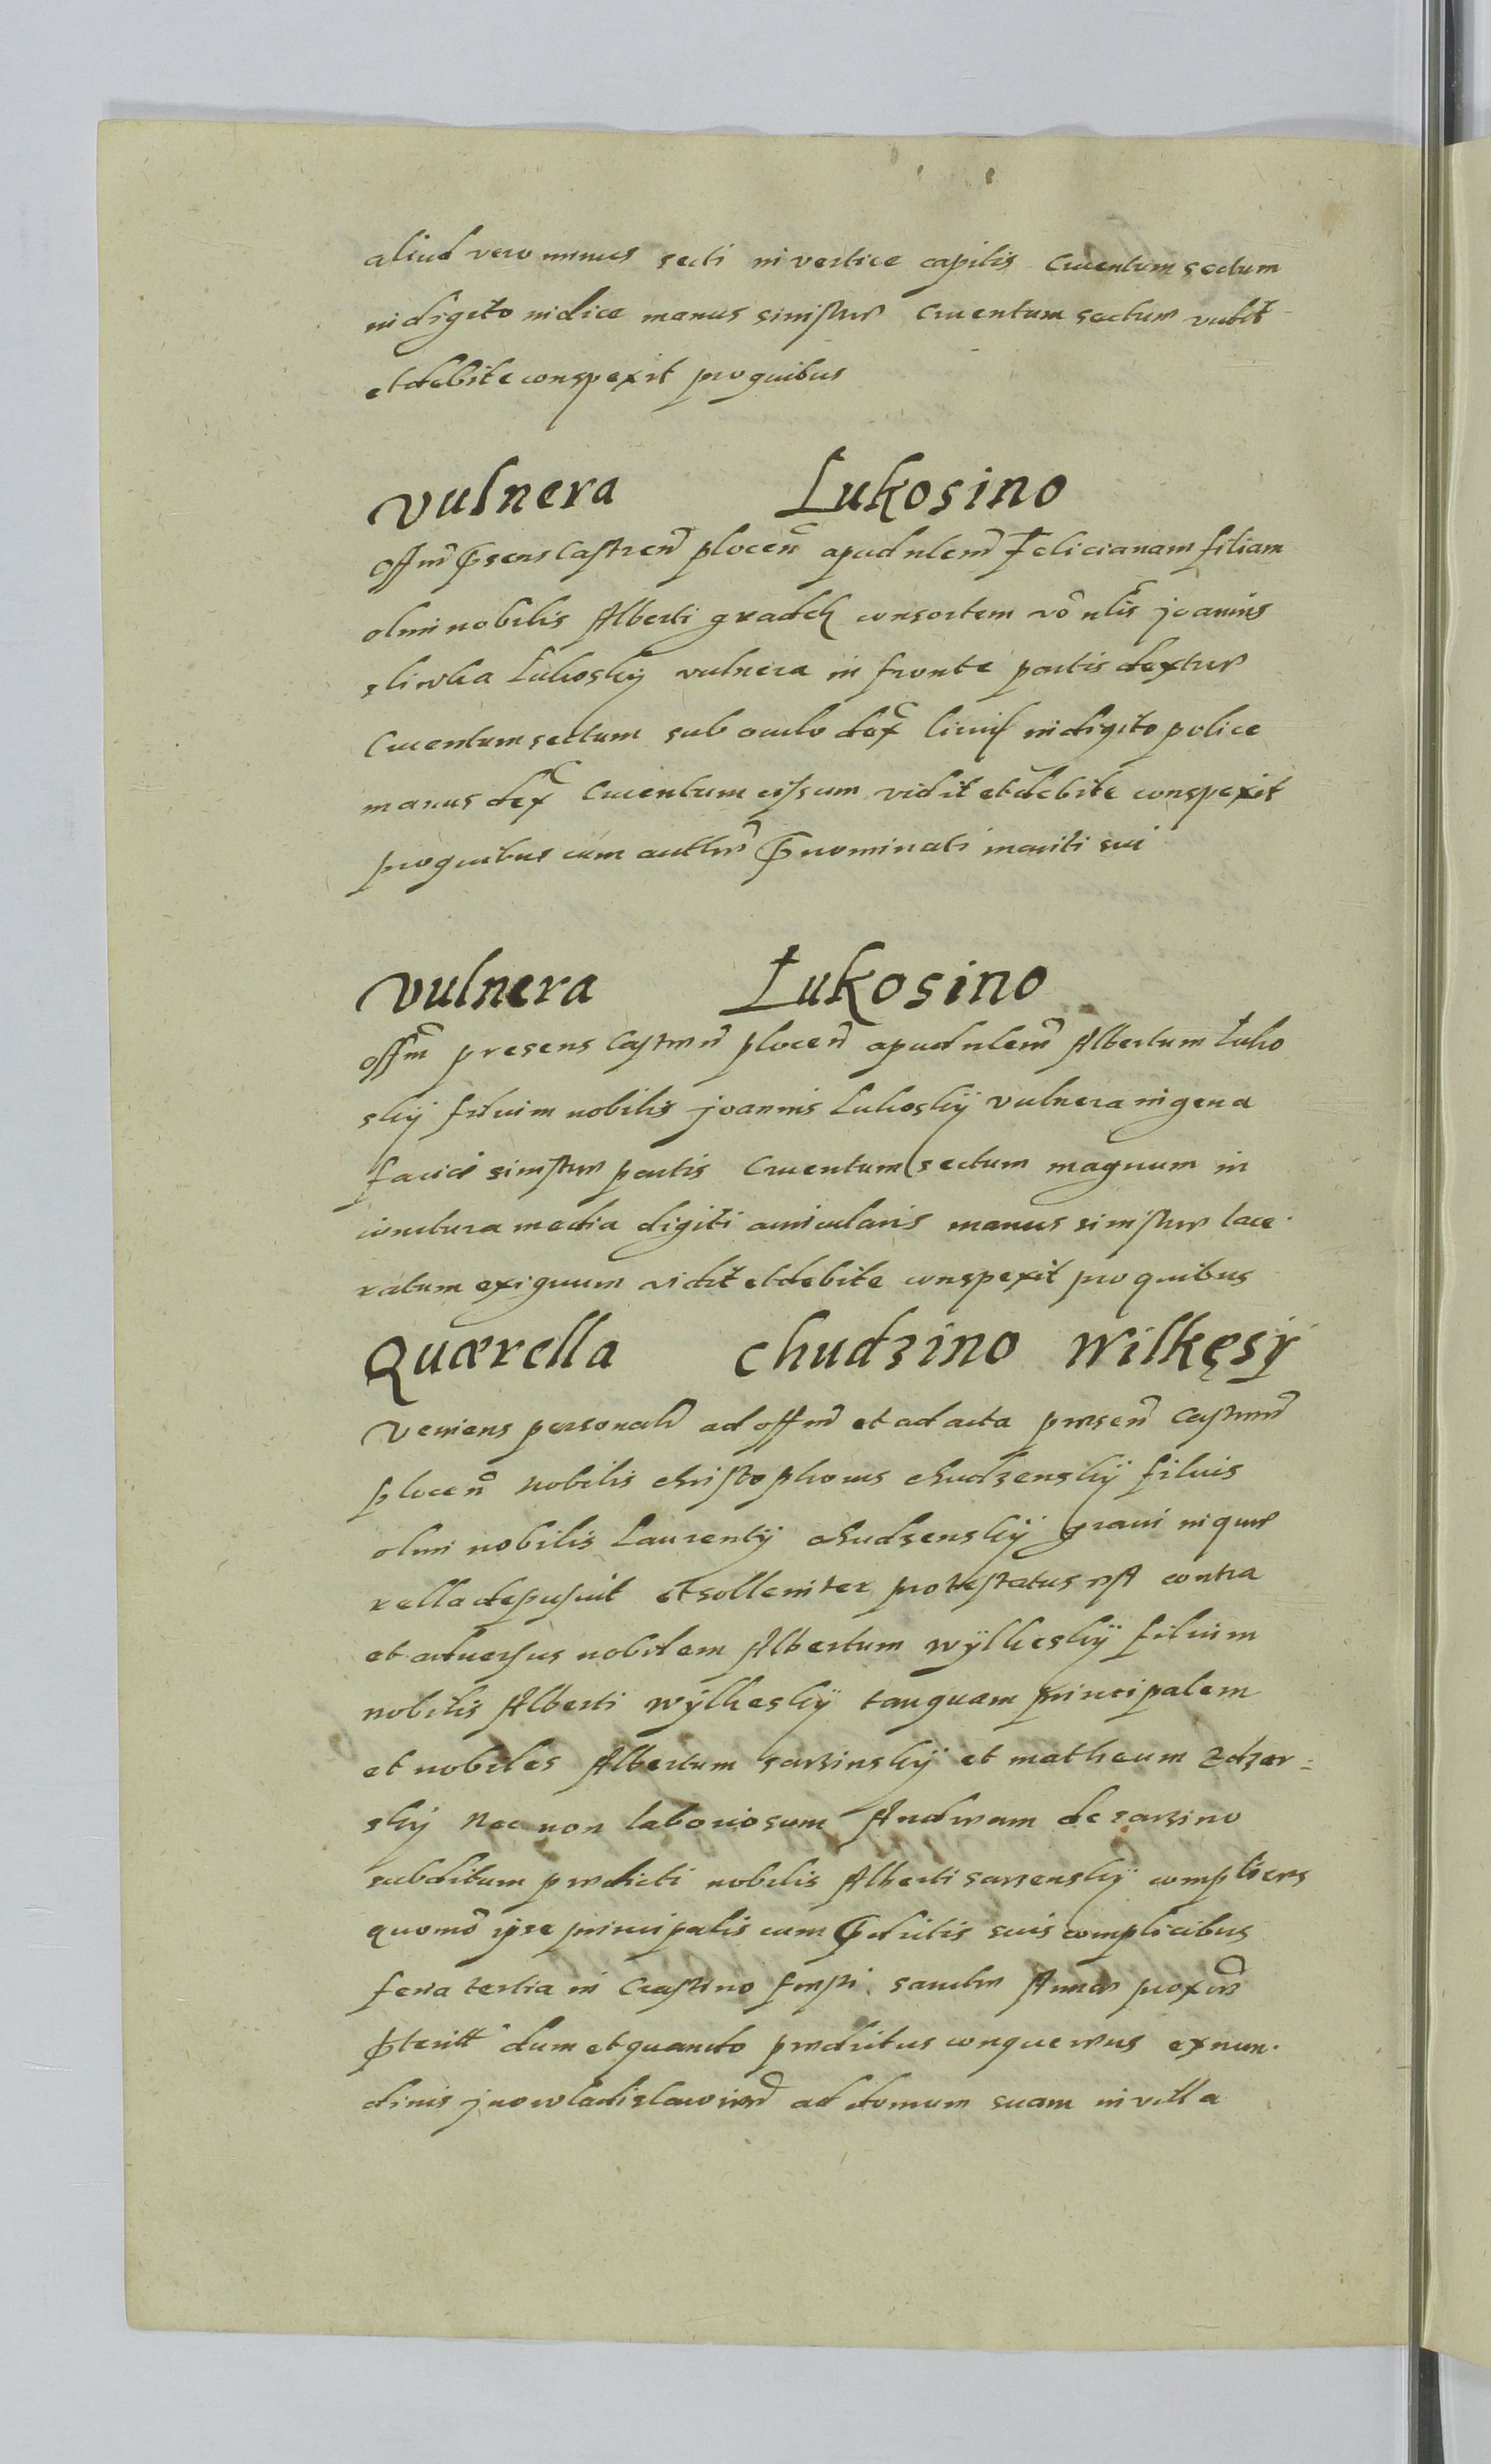 aliud vero minus secti in vertice capitis cruentum sectum
in digito indice manus sinistræ cruentum sectum vidit
et debite conspexit pro quibus
Vulnera Łukosino
Offm̃ p̃sens Castren̄ plocen̄ apud nlem̄ Felicianam filiam
olim nobilis Alberti gradek consortem vō nlis joannis
sliwka Lukosky vulnera in fronte partis dextræ
Cruentum sectum sub oculo dex̃ in digito police
manus dex̃ Cruentum cissum vidit et debite conspexit
pro quibus cum autthæ p̃nominati mariti sui
Vulnera Łukosino
Offm̃ presens Castren̄ plocen̄ apud nlem̄ Albertum Łuko
sky filium nobilis joannis Lukosky vulnera in gena
faciei sinistræ partis Cruentum sectum magnum in
iunctura media digiti auricularis manus sinistræ lace
ratum exiguum vidit et debite conspexit pro quibus
Quærella Chudzino Wilkęsÿ
Veniens personalr̄ ad offm̄ et ad acta præsen̄ Castren̄
plocen̄ nobilis christophorus chudzensky filius
olim nobilis Laurentÿ chudzenskÿ graui in quæ
rella deposuit et solleniter protestatus est contra
et aduersus nobilem Albertum wÿlkeskÿ filium
nobilis Alberti wÿlkeskÿ tanquam principalem
et nobiles Albertum sarzinskÿ et matheum Zdzar=
skÿ Nec non laboriosum Andream de sarzino
subditum prædicti nobilis Alberti sarzenskÿ complices
quomō ipse principalis cum p̃dictis suis complicibus
feria tertia in Crastino festi sanctæ Annæ proxīæ
p̃teritt dum et quando prædictus conquerens ex nun
dinis jnowladislauien̄ ad domum suam in villa